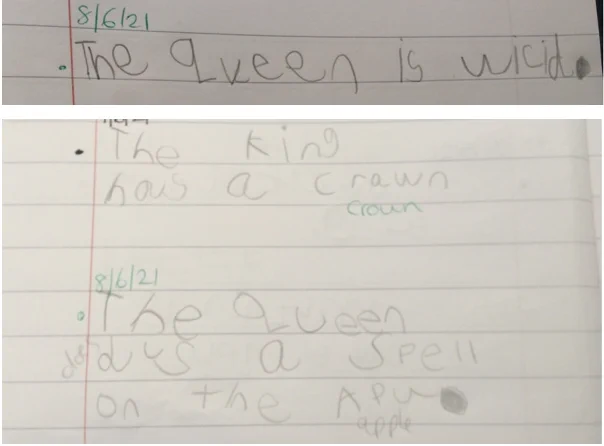 8/6/21
. The Queen is wicid.
. The King
has a crawn
croun
8/6/21
. The Queen
dus a Spell
on the Apu
apple